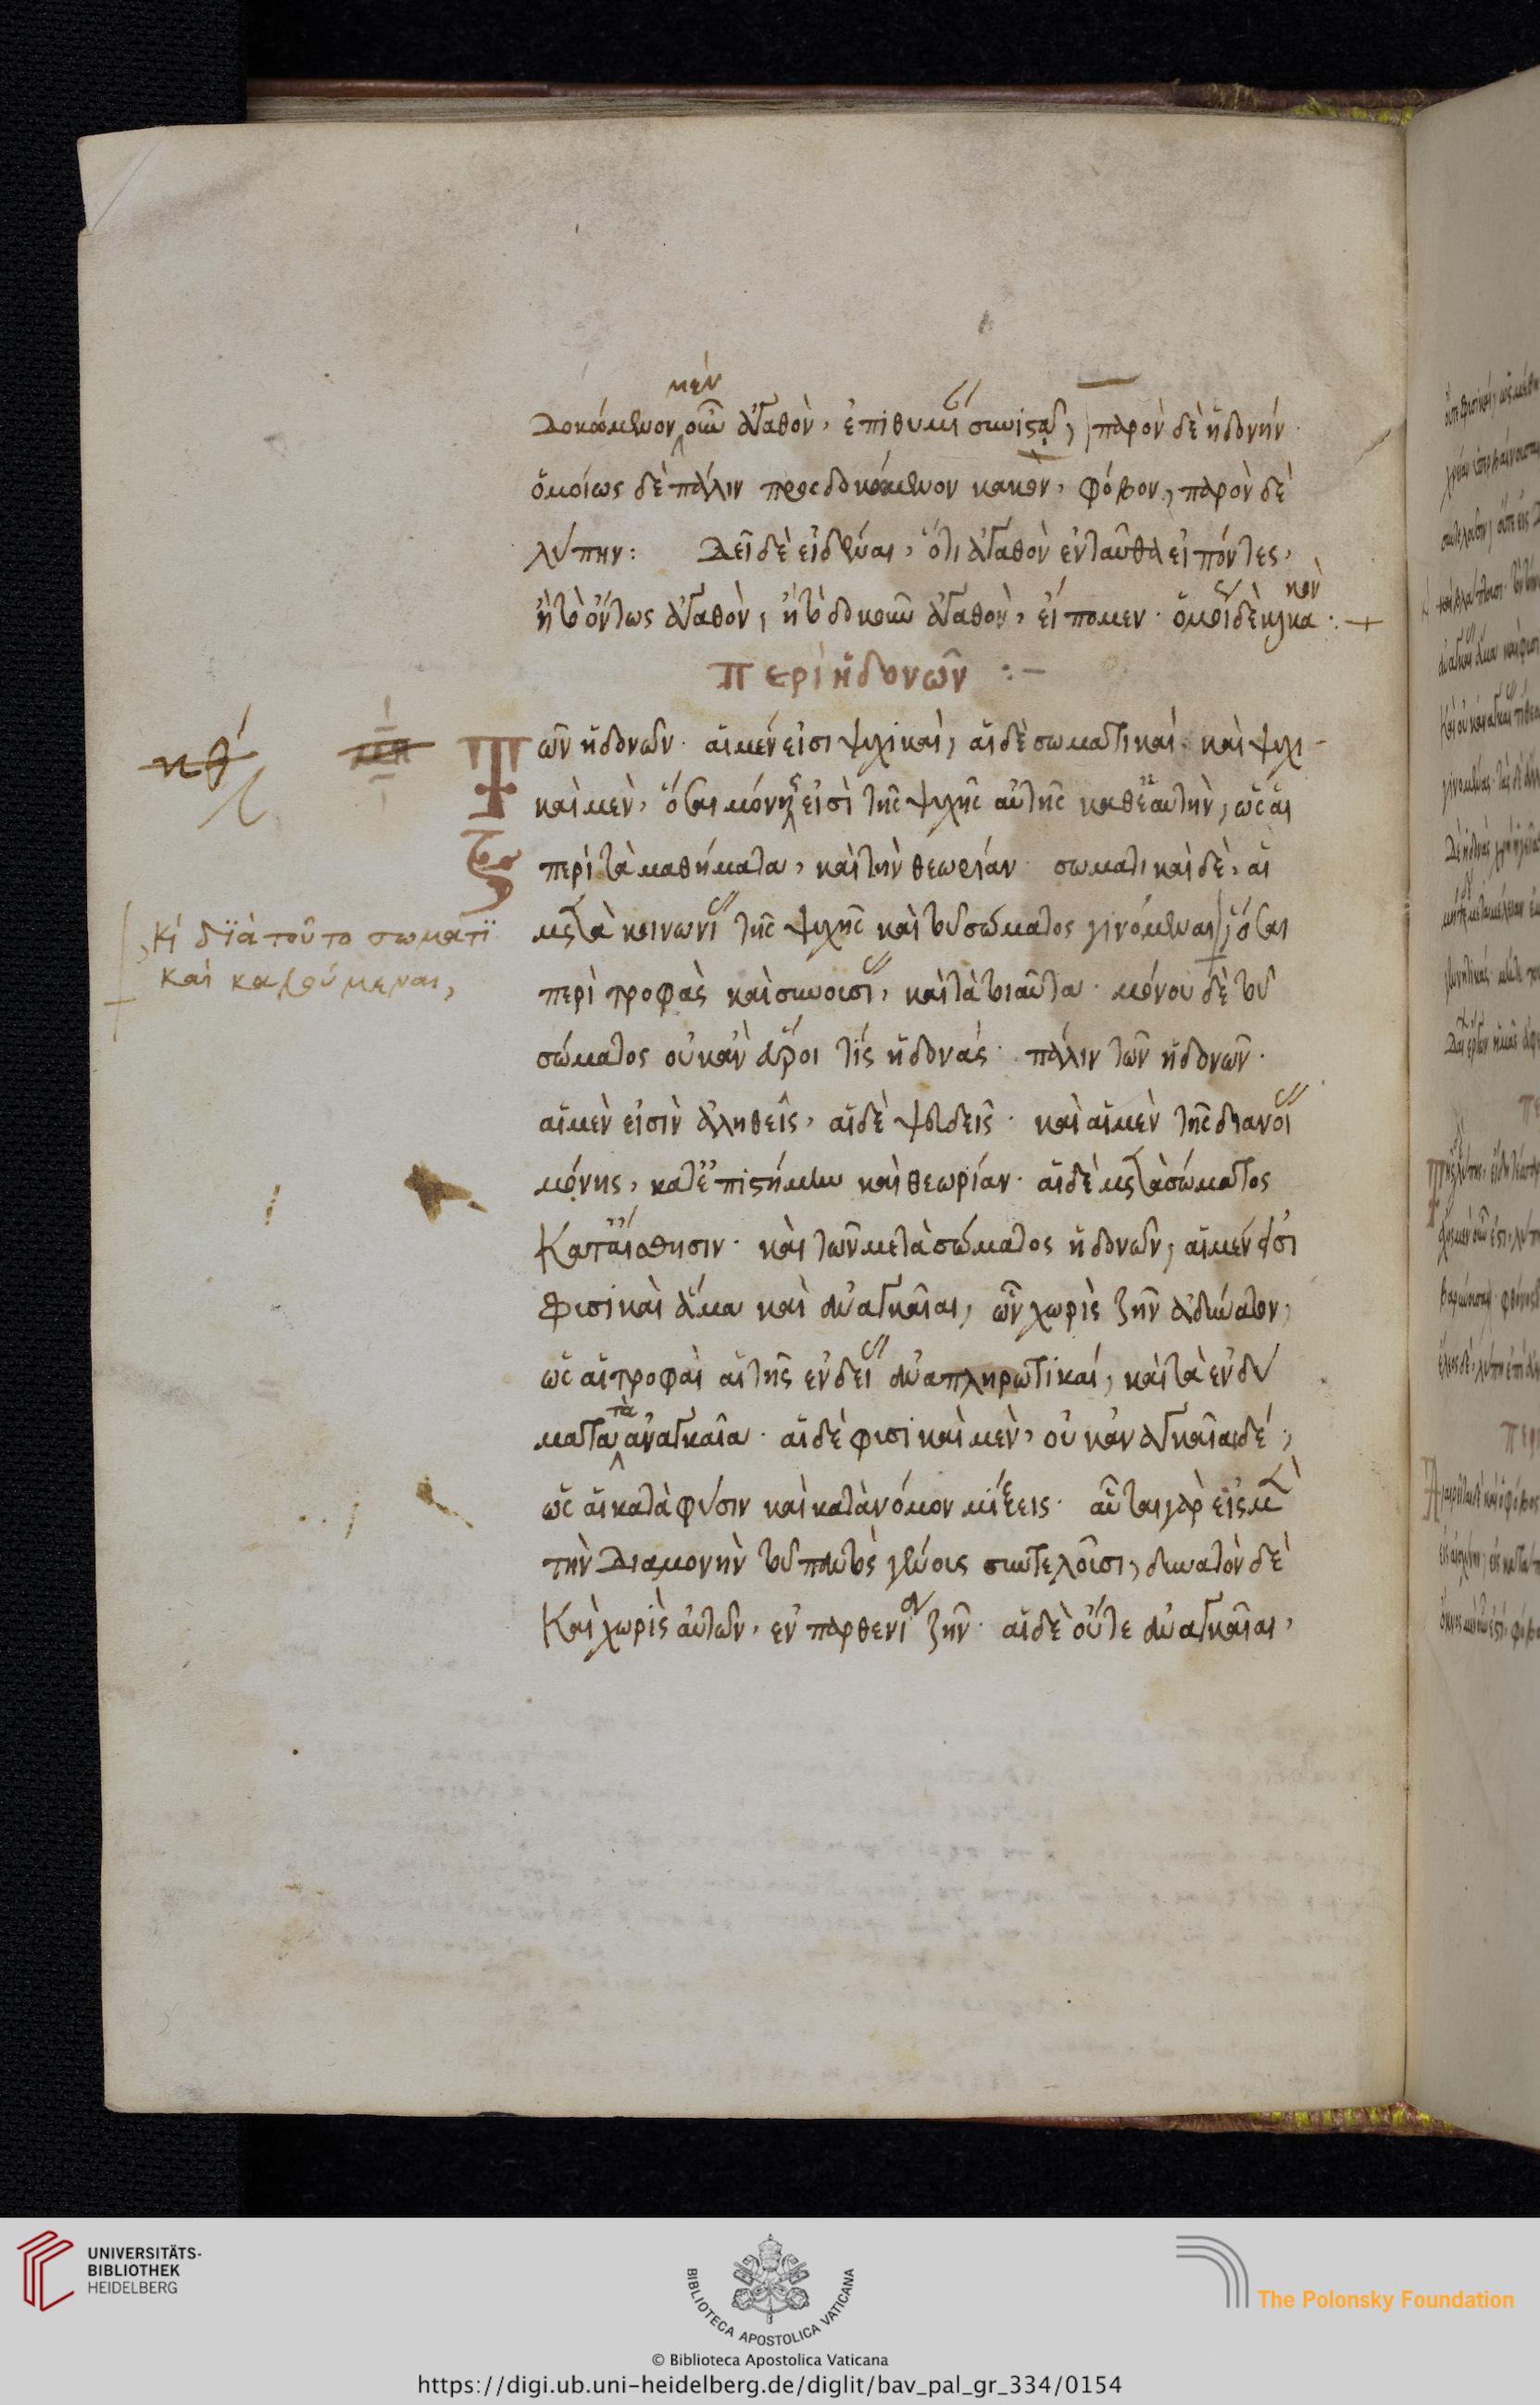 μὲν
Δοκώμενον οὖν ἀγαθὸν, ἐπιθυμί συνιςᾷ, παρὸν δὲ ἡδονήν·
ὁμοίως δὲ πάλιν προσδοκόμενον κακὸν, φόβον, παρὸν δὲ
λύπην: Δεῖ δὲ εἰδέναι, ὅτι ἀγαθὸν ἐνταῦθα εἰπόντες,
ἢ τὸ ὄντως ἀγαθὸν, ἢ τὸ δοκοῦν ἀγαθὸν, εἴπομεν· ὁμοί δὲ κακὸν
περὶ ἡδονῶν :—
Τῶν ἡδονῶν· αἱ μέν εἰσι ψυχικαί, αἱ δὲ σωματικαί· καὶ ψυχι-
καὶ μὲν, ὅσαι μόνης εἰσὶ τῆς ψυχῆς αὐτῆς καθ' ἑαυτὴν, ὡς αἱ
περὶ τὰ μαθήματα, καὶ τὴν θεωρίαν· σωματικαὶ δὲ, αἱ
κθ
μετὰ κοινωνί τῆς ψυχῆς καὶ τοῦ σώματος γινόμεναι, ὅσαι
κὶ διὰ τοῦτο σωματι
καὶ καλούμεναι,
περὶ τροφὰς καὶ συνουσί, καὶ τὰ τοιαῦτα· μόνου δὲ τοῦ
σώματος οὐκ ἂν εὕροι τίς ἡδονάς· πάλιν τῶν ἡδονῶν·
αἱ μὲν εἰσὶν ἀληθεῖς, αἱ δὲ ψευδεῖς· καὶ αἱ μὲν τῆς διανοί
μόνης, κατ' ἐπιστήμην καὶ θεωρίαν· αἱ δὲ μετὰ σώματος
Κατ' αἴσθησιν· καὶ τῶν μετὰ σώματος ἡδονῶν, αἱ μέν εἰσι
φυσικαὶ ἅμα καὶ ἀναγκαῖαι, ὧν χωρὶς ζῆν ἀδύνατον,
ὡς αἱ τροφαὶ αἱ τῆς ἐνδεί ἀναπληρωτικαί, καὶ τὰ ἐνδύ
ματα τὰ ἀναγκαῖα· αἱ δὲ φυσικαὶ μὲν, οὐκ ἀναγκαῖαι δέ,
ὡς αἱ κατὰ φύσιν καὶ κατὰ νόμον μίξεις· αὗται γὰρ εἰς μὲν
τὴν Διαμονὴν τοῦ παντὸς γένους συντελοῦσι, δυνατὸν δὲ
Καὶ χωρὶς αὐτῶν, ἐν παρθενίᾳ ζῆν· αἱ δὲ οὔτε ἀναγκαῖαι,
UNIVERSITÄTS-
BIBLIOTHEK
HEIDELBERG
BIBLIOTECA APOSTOLICA VATICANA
The Polonsky Foundation
© Biblioteca Apostolica Vaticana
https://digi.ub.uni-heidelberg.de/diglit/bav_pal_gr_334/0154